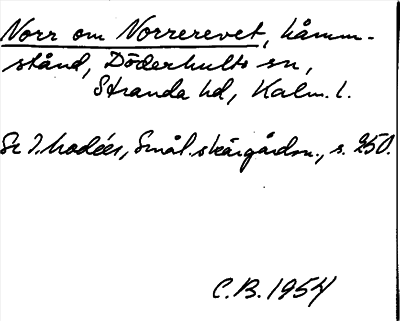 Norr om Norrerevet, håmm-
stånd, Döderhults sn,
Stranda hd, Kalm. l.
Se I. Modéer, Smål. skärgårdsn., s. 250.
C.B. 1954